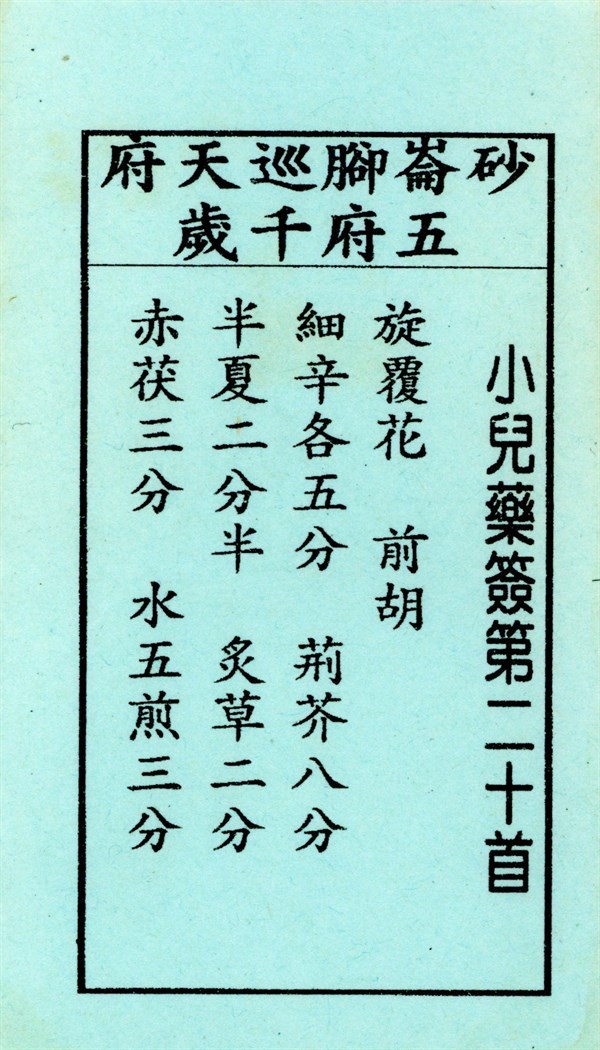 砂崙腳巡天府
五府千歲
小兒藥簽第二十首
旋覆花　前胡
細辛各五分　荊芥八分
半夏二分半　炙草二分
赤茯三分　水五煎三分